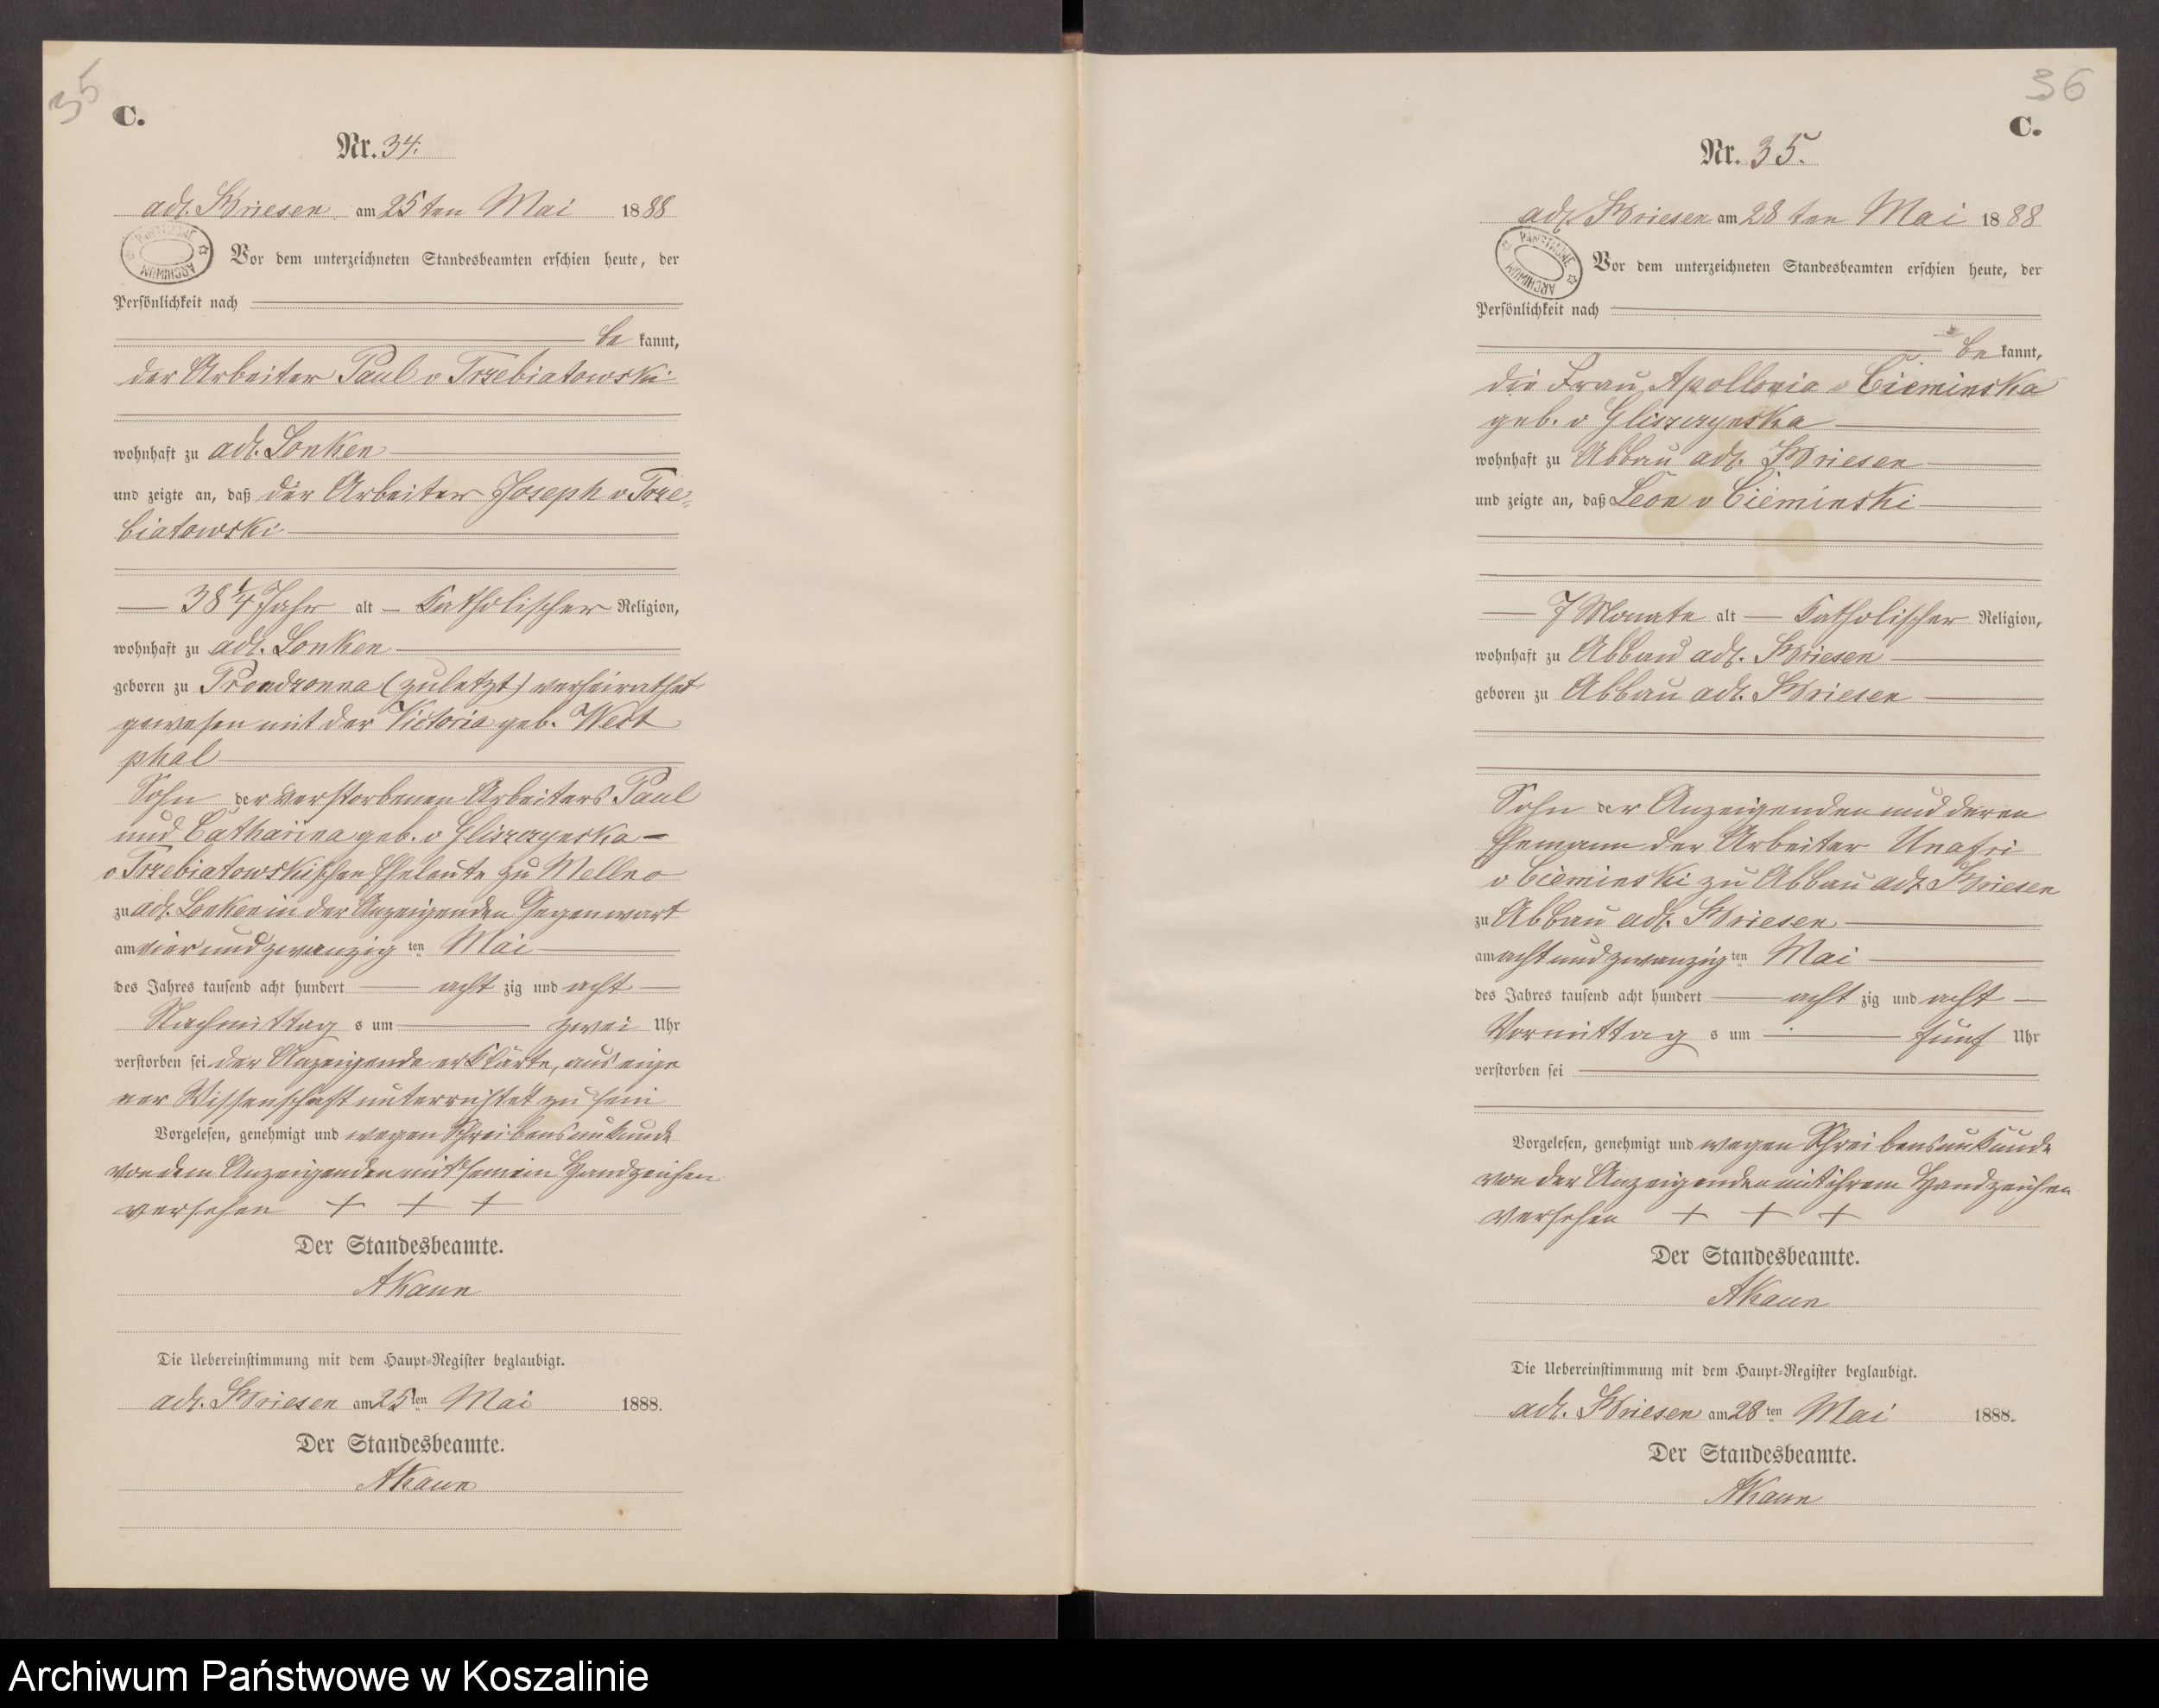 35
C.
Nr. 34.
adl. Briesen am 25ten Mai 1888
PAŃSTWOWE ARCHIWUM
Vor dem unterzeichneten Standesbeamten erschien heute, der
Persönlichkeit nach
be kannt,
der Arbeiter Paul v Trzebiatowski
wohnhaft zu adl. Lonken
und zeigte an, daß der Arbeiter Joseph v Trze-
biatowski
38 1/4 Jahr alt – Katholischer Religion,
wohnhaft zu adl. Lonken
geboren zu Prondzonna (zuletzt) verheirathet
gewesen mit der Victoria geb. West
phal
Sohn der verstorbenen Arbeiters Paul
und Catharina geb. v Gliszczynska –
v Trzebiatowskischen Eheleute zu Mellno
zu adl. Lonken in der Anzeigenden Gegenwart
am vier und zwanzig ten Mai
des Jahres tausend acht hundert acht zig und acht
Nachmittag s um zwei Uhr
verstorben sei der Anzeigende erklärte, aus eige
ner Wissenschaft unterrichtet zu sein
Vorgelesen, genehmigt und wegen Schreibensunkunde
von dem Anzeigenden mit seinem Handzeichen
versehen + + +
Der Standesbeamte.
AKann
Die Uebereinstimmung mit dem Haupt-Register beglaubigt.
adl. Briesen am 25ten Mai 1888.
Der Standesbeamte.
AKann
36
C.
Nr. 35.
adl. Briesen am 28 ten Mai 1888
PAŃSTWOWE ARCHIWUM
Vor dem unterzeichneten Standesbeamten erschien heute, der
Persönlichkeit nach
be kannt,
die Frau Apollonia v Cieminska
geb. v Gliszczynska
wohnhaft zu Abbau adl. Briesen
und zeigte an, daß Leon v Cieminski
7 Monate alt – Katholischer Religion,
wohnhaft zu Abbau adl. Briesen
geboren zu Abbau adl. Briesen
Sohn der Anzeigenden und deren
Ehemann der Arbeiter Unafri
v Cieminski zu Abbau adl. Briesen
zu Abbau adl. Briesen
am acht und zwanzig ten Mai
des Jahres tausend acht hundert acht zig und acht
Vormittag s um fünf Uhr
verstorben sei
Vorgelesen, genehmigt und wegen Schreibensunkunde
von der Anzeigenden mit ihrem Handzeichen
versehen + + +
Der Standesbeamte.
AKann
Die Uebereinstimmung mit dem Haupt-Register beglaubigt.
adl. Briesen am 28ten Mai 1888.
Der Standesbeamte.
AKann
Archiwum Państwowe w Koszalinie